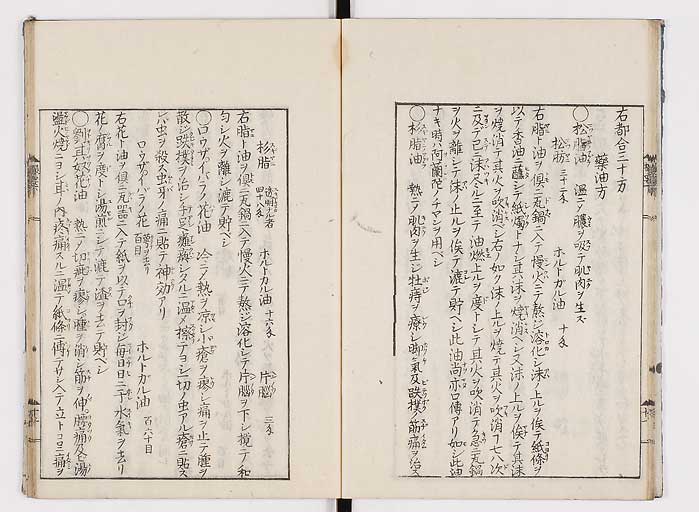 右都合三十方
藥油方
○松脂油 温ニノ膿ヲ吸テ肌肉ヲ生ス
松肪 三十二戔 ホルトカル油 十戔
右脂ト油ヲ倶ニ瓦鍋ニ入テ慢火ニテ熬シ溶化シ沫ノ上ルヲ俟テ紙條ヲ
以テ香油ニ蘸シテ紙燭トナシ其沫ヲ燒消ベシ又沫ノ上ルヲ俟テ其沫
ヲ燒消テ其火ヲ吹消ベシ右ノ如ク沫ノ上ルヲ燒テ其火ヲ吹消フ七八次
ニ及テ已ニ沫ルニ至テ油燃上ルヲ度トシテ其火ヲ吹消テ急ニ瓦鍋
ヲ火ヲ離シテ沫ノ止ルヲ俟テ漉テ貯ベシ此油尚亦口傳アリ如シ此油
ナキ時ハ阿蘭陀ノチマンヲ用ベシ
○杉脂油 熱ニノ肌肉ヲ生シ牡痔ヲ療シ脚氣及跌撲ノ筋痛ヲ治ス
杉脂 透明ナル者 四十八戔 ホルトカル油 十六戔 片腦 三戔
右脂ト油ヲ倶ニ瓦鍋ニ入テ慢火ニテ熬シ溶化シテ片腦ヲ下シ攪テ和
匀シ火ヲ離シ漉テ貯ベシ
○ロウザノイバラノ花油 冷ニノ熱ヲ凉シ小瘡ヲ療シ痛ヲ止テ腫ヲ
散シ跌撲ヲ治シ手足癱瘓シタルニ温メ擦テヨシ一切ノ虫アル瘡ニ貼ス
レバ虫ヲ殺ス虫牙ノ痛ニ貼テ神効アリ
ロウザノイバラノ花 百目 ホルトガル油 百六十目
右花ト油ヲ倶ニ瓦噐ニ入テ紙ヲ以テ口ヲ封シ毎日日ニ干水氣ヲ去リ
花ノ腐ヲ度トシ湯煎ニシテ漉テ渣ヲ去テ貯ベシ
○劉寄奴花油 熱ニノ一切ノ疵ヲ療シ腫ヲ消シ筋ヲ伸ヘ腰痛及ヒ湯
盪火燒ニヨシ耳ノ内疼痛スルニ温テ紙條ニ傳テサシ入テ立トコロニ痛ヲ